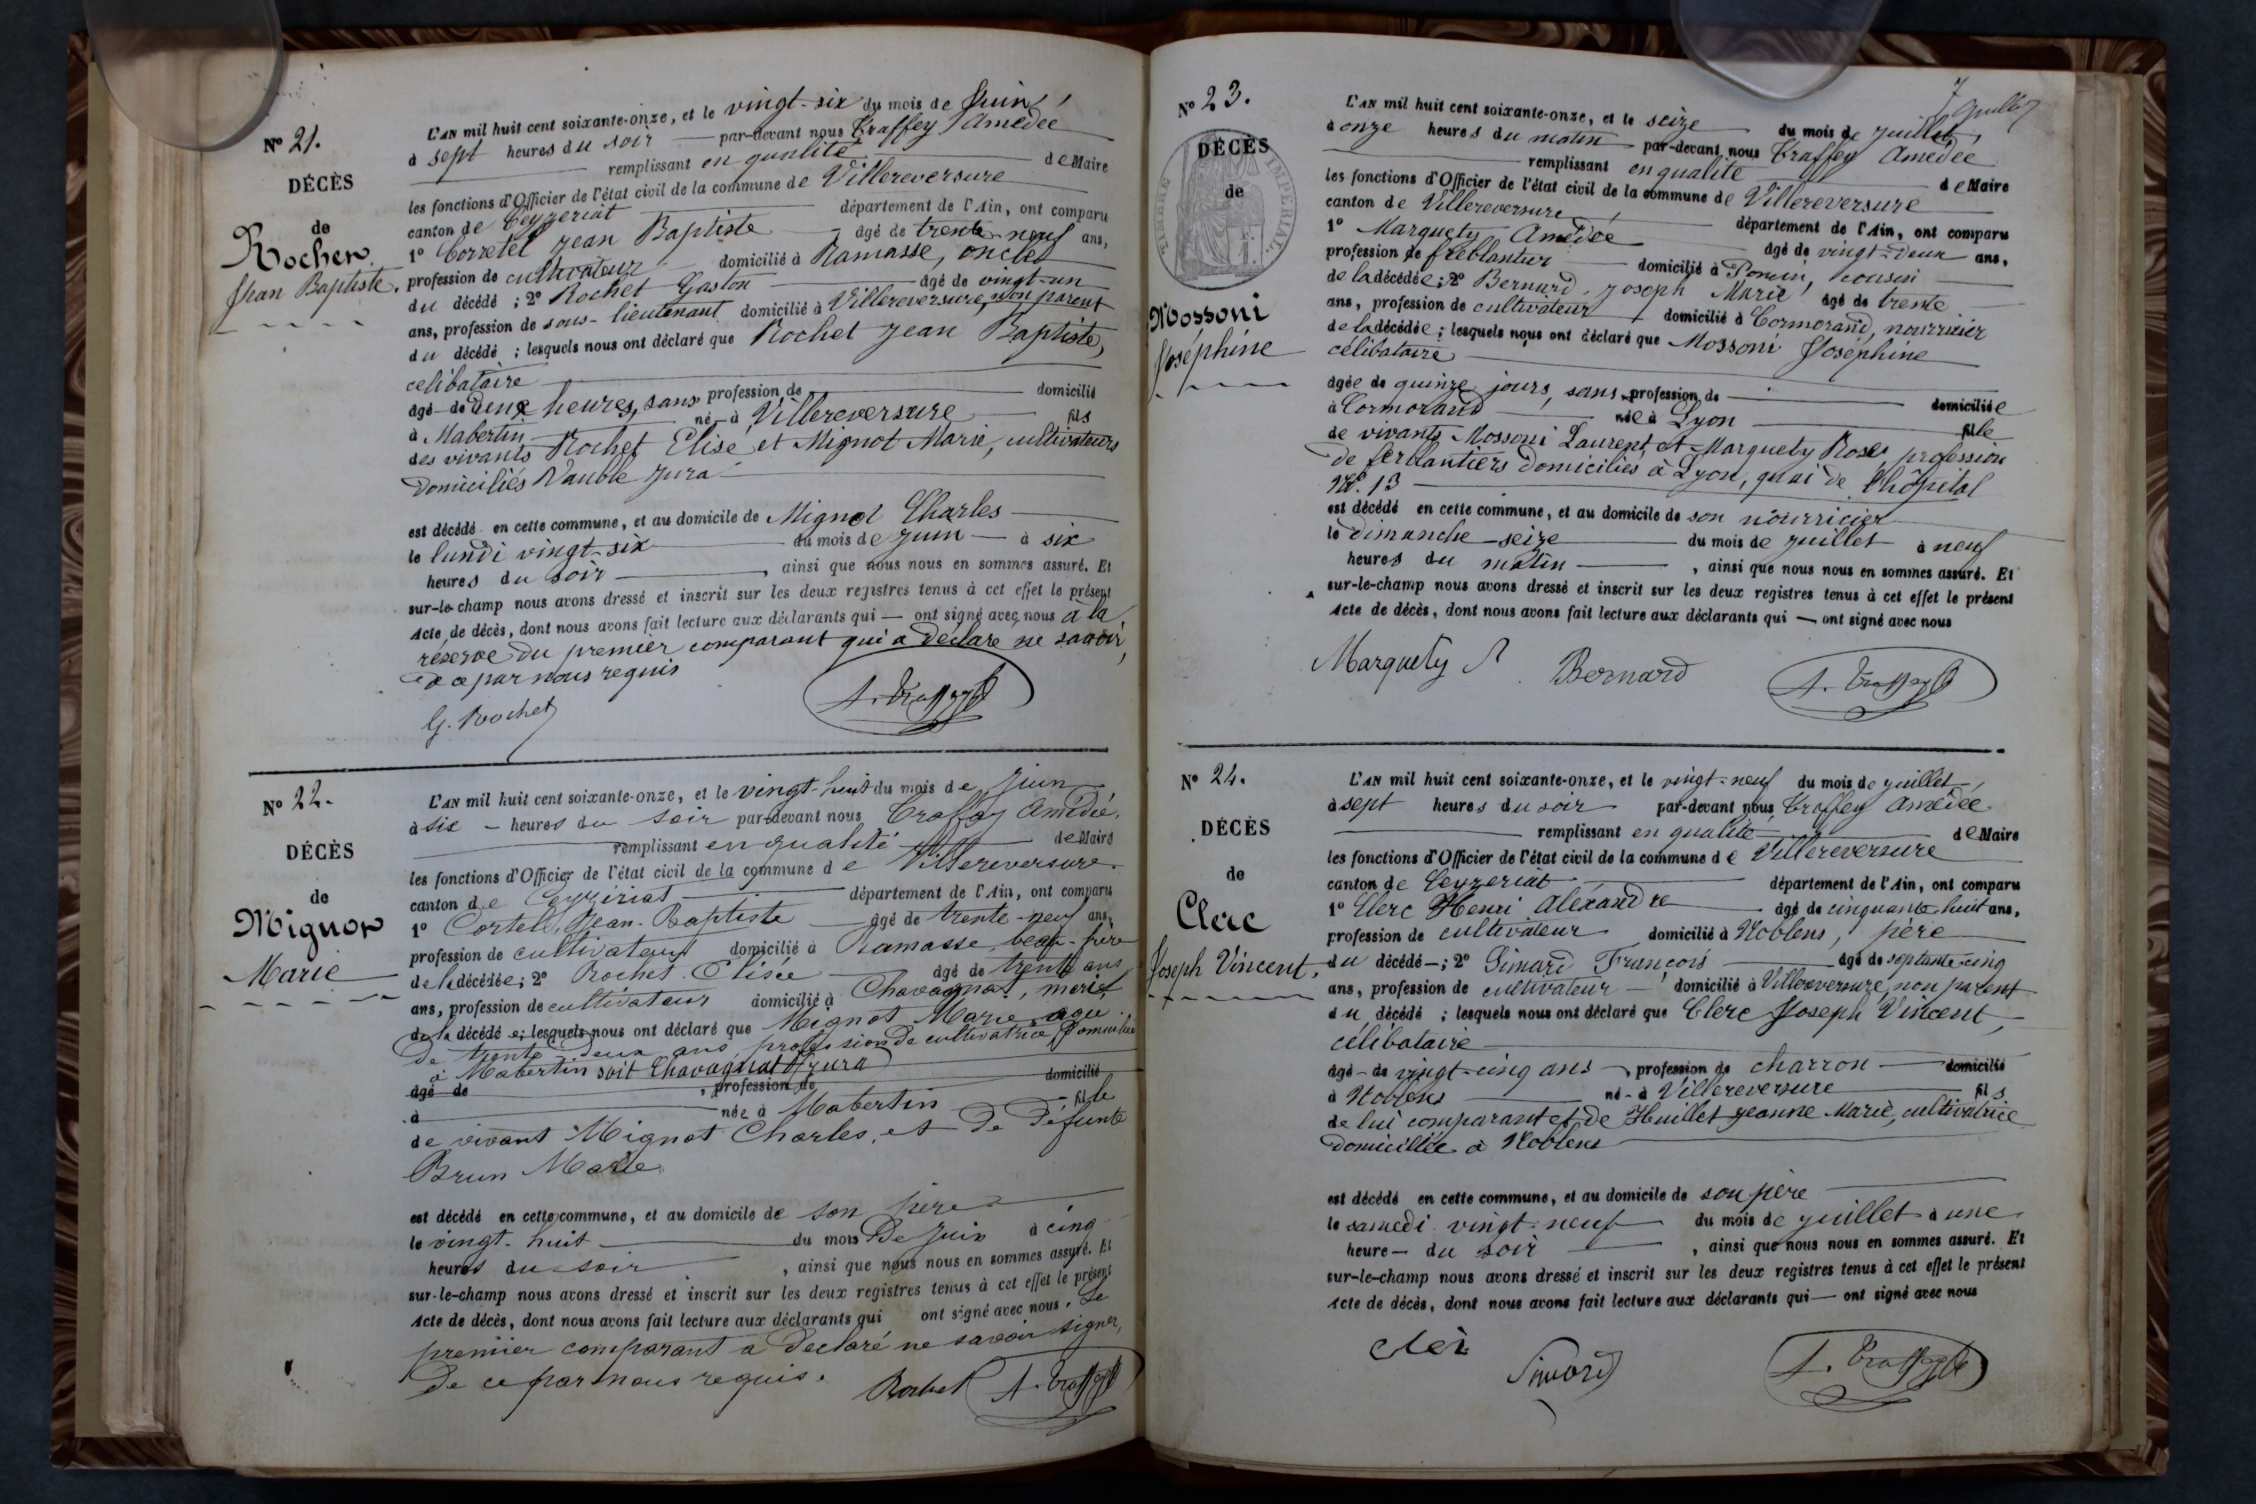 N° 21.
DÉCÈS
de
Rochet
Jean Baptiste.
L'AN mil huit cent soixante-onze, et le vingt-six du mois de Juin,
à sept heures du soir par-devant nous Traffey Amédée
remplissant en qualité de Maire
les fonctions d'Officier de l'état civil de la commune de Villereversure
canton de Ceyzeriat département de l'Ain, ont comparu
1° Corretel Jean Baptiste âgé de trente-neuf ans,
profession de cultivateur domicilié à Ramasse, oncle
du décédé ; 2° Rochet Gaston âgé de vingt-un
ans, profession de sous-lieutenant domicilié à Villereversure, non parent
du décédé ; lesquels nous ont déclaré que Rochet Jean Baptiste,
celibataire
âgé de deux heures, sans profession de domicilié
à Mabertin né à Villereversure fils
des vivants Rochet Elise et Mignot Marie, cultivateurs
domiciliés Jura
est décédé en cette commune, et au domicile de Mignot Charles
le lundi vingt-six du mois de Juin à six
heures du soir , ainsi que nous nous en sommes assuré. Et
sur-le-champ nous avons dressé et inscrit sur les deux registres tenus à cet effet le présent
Acte de décès, dont nous avons fait lecture aux déclarants qui — ont signé avec nous à la
réserve du premier comparant qui a déclaré ne savoir,
de ce par nous requis
G. Rochet A. Traffey
N° 22.
DÉCÈS
de
Mignot
Marie
L'AN mil huit cent soixante-onze, et le vingt-huit du mois de Juin
à six – heures du soir par-devant nous Traffey Amédée,
remplissant en qualité de Maire
les fonctions d'Officier de l'état civil de la commune de Villereversure
canton de Ceyzériat département de l'Ain, ont comparu
1° Cortel, Jean-Baptiste âgé de trente-neuf ans,
profession de cultivateur domicilié à Ramasse, beau-frère
de la décédée ; 2° Rochet Elisée âgé de trente ans
ans, profession de cultivateur domicilié à Chavagnat, mari
de la décédée ; lesquels nous ont déclaré que Mignot Marie agée
de trente deux ans profession de cultivatrice domiciliée
à Mabertin soit Chavagnat Jura
âgé de , profession de domicilié
à née à Mabertin fille
de vivant Mignot Charles, et de défunte
Brun Marie
est décédé en cette commune, et au domicile de son père
le vingt-huit du mois De Juin à cinq
heures du soir , ainsi que nous nous en sommes assuré. Et
sur-le-champ nous avons dressé et inscrit sur les deux registres tenus à cet effet le présent
Acte de décès, dont nous avons fait lecture aux déclarants qui ont signé avec nous. Le
premier comparant a déclaré ne savoir signer,
De ce par nous requis. Rochet A. Traffey
7
Juillet
N° 23.
DÉCÈS
de
TIMBRE IMPÉRIAL
Mossoni
Joséphine
L'AN mil huit cent soixante-onze, et le seize du mois de Juillet,
à onze heures du matin par-devant nous Traffey Amédée
remplissant en qualité de Maire
les fonctions d'Officier de l'état civil de la commune de Villereversure
canton de Villereversure département de l'Ain, ont comparu
1° Marquety Amédée âgé de vingt-deux ans,
profession de freblantier domicilié à Poncin, cousin
de la décédée ; 2° Bernard Joseph Marie âgé de trente
ans, profession de cultivateur domicilié à Cormorand, nourricier
de la décédée ; lesquels nous ont déclaré que Mossoni Joséphine
célibataire
âgée de quinze jours, sans profession de domiciliée
à Cormorand née à Lyon fille
de vivants Mossoni Laurent et Marquety Rose, profession
de ferblantiers domiciliés à Lyon, quai de l'hôpital
N° 13
est décédé en cette commune, et au domicile de son nourricier
le dimanche seize du mois de Juillet à neuf
heures du matin , ainsi que nous nous en sommes assuré. Et
sur-le-champ nous avons dressé et inscrit sur les deux registres tenus à cet effet le présent
Acte de décès, dont nous avons fait lecture aux déclarants qui — ont signé avec nous
Marquety A Bernard A. Traffey
N° 24.
DÉCÈS
de
Clerc
Joseph Vincent,
L'AN mil huit cent soixante-onze, et le vingt-neuf du mois de Juillet,
à sept heures du soir par-devant nous Traffey Amédée
remplissant en qualité de Maire
les fonctions d'Officier de l'état civil de la commune de Villereversure
canton de Ceyzeriat département de l'Ain, ont comparu
1° Clerc Henri Aléxandre âgé de cinquante huit ans,
profession de cultivateur domicilié à Noblens, père
du décédé — ; 2° Simard François âgé de septante-cinq
ans, profession de cultivateur — domicilié à Villereversure, non parent
du décédé ; lesquels nous ont déclaré que Clerc Joseph Vincent,
célibataire
âgé de vingt-cinq ans profession de charron domicilié
à Noblens né à Villereversure fils
de lui comparant et de Huillet Jeanne Marie, cultivatrice
domiciliée à Noblens
est décédé en cette commune, et au domicile de son père
le samedi vingt-neuf du mois de Juillet à une
heure — du soir , ainsi que nous nous en sommes assuré. Et
sur-le-champ nous avons dressé et inscrit sur les deux registres tenus à cet effet le présent
Acte de décès, dont nous avons fait lecture aux déclarants qui — ont signé avec nous
Simard A. Traffey